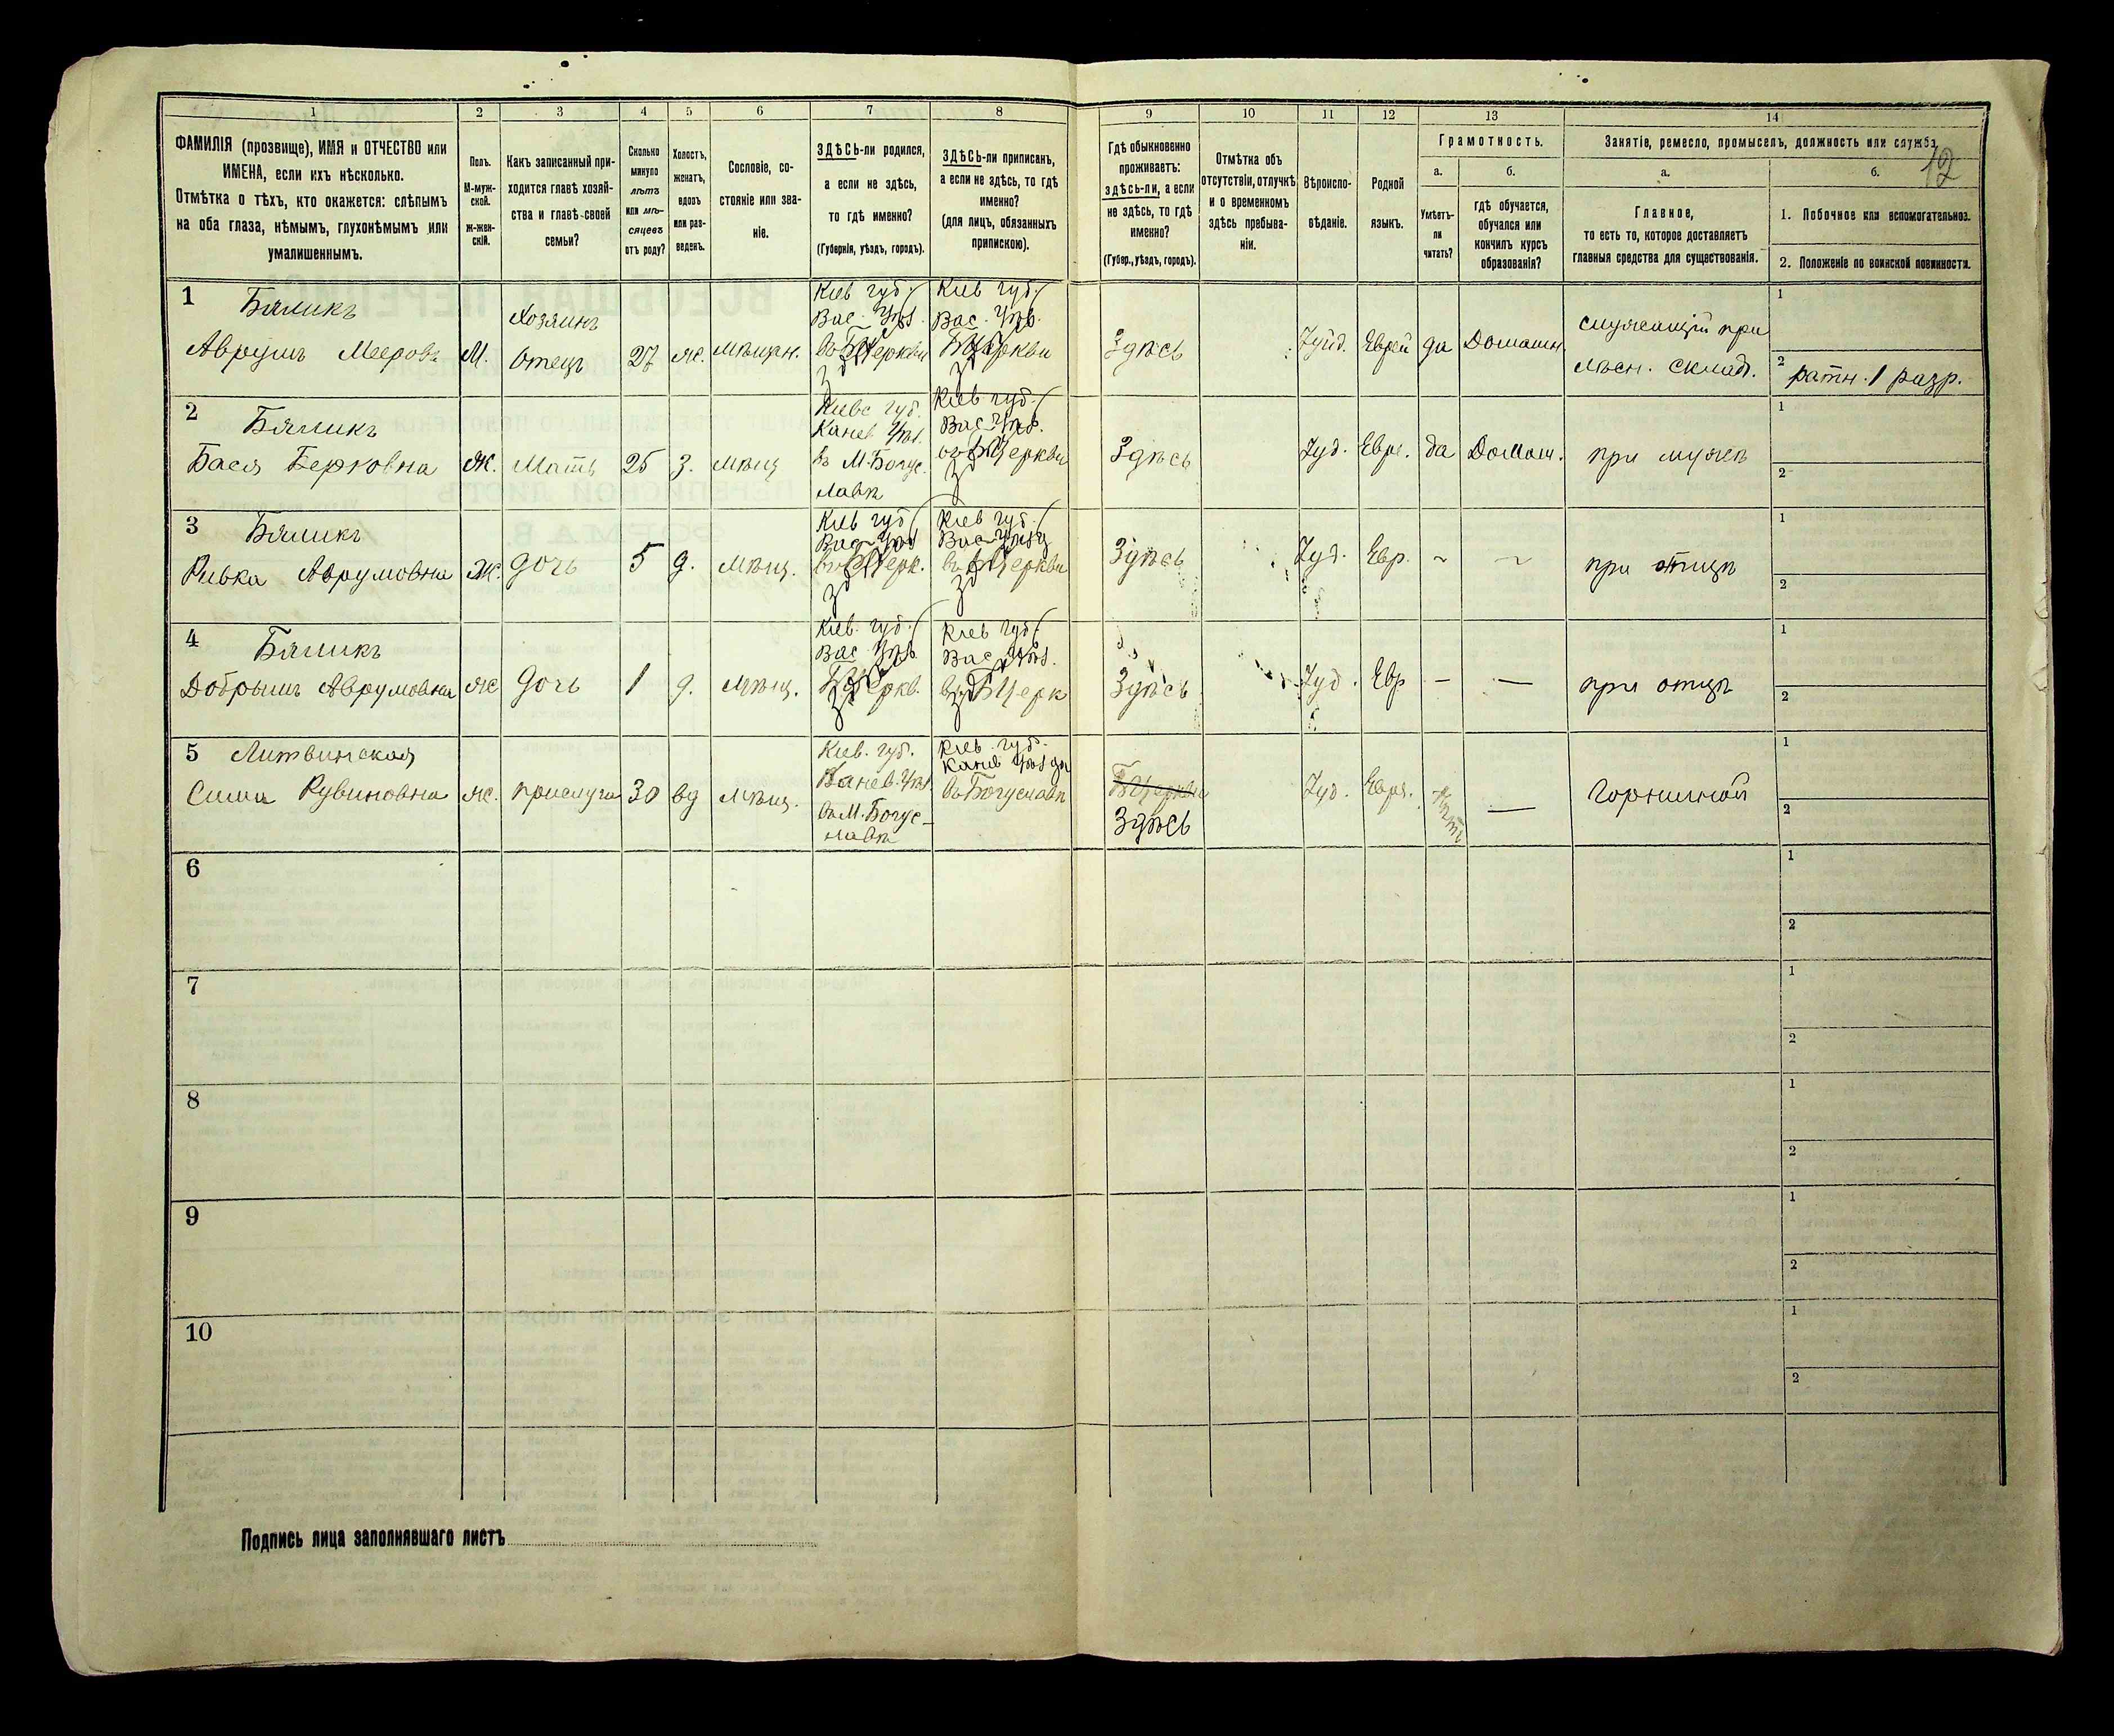 1 2 3 4 5 6 7 8 9 10 11 12 13 14
ФАМИЛІЯ (прозвище), ИМЯ и ОТЧЕСТВО или
ИМЕНА, если ихъ нѣсколько.
Отмѣтка о тѣхъ, кто окажется: слѣпымъ
на оба глаза, нѣмымъ, глухонѣмымъ или
умалишеннымъ.
Полъ.
М-муж-
ской.
ж-жен-
скій.
Какъ записанный при-
ходится главѣ хозяй-
ства и главѣ своей
семьи?
Сколько
минуло
лѣтъ
или мѣ-
сяцевъ
отъ роду?
Холостъ,
женатъ,
вдовъ
или раз-
веденъ.
Сословіе, со-
стояніе или зва-
ніе.
ЗДѢСЬ-ли родился,
а если не здѣсь,
то гдѣ именно?
(Губернія, уѣздъ, городъ).
ЗДѢСЬ-ли приписанъ,
а если не здѣсь, то гдѣ
именно?
(для лицъ, обязанныхъ
припискою).
Гдѣ обыкновенно
проживаетъ:
здѣсь-ли, а если
не здѣсь, то гдѣ
именно?
(Губер., уѣздъ, городъ).
Отмѣтка объ
отсутствіи, отлучкѣ
и о временномъ
здѣсь пребыва-
ніи.
Вѣроиспо-
вѣданіе.
Родной
языкъ.
Грамотность.
а.
Умѣетъ-
ли
читать?
б.
гдѣ обучается,
обучался или
кончилъ курсъ
образованія?
Занятіе, ремесло, промыселъ, должность или служба.
12
а.
Главное,
то есть то, которое доставляетъ
главныя средства для существованія.
б.
1. Побочное или вспомогательное.
2. Положеніе по воинской повинности.
1 Бяликъ
Аврумъ Мееровъ
М.
Хозяинъ
Отецъ
27
ж.
мѣщан.
Кіев губ.
Вас. Уѣз.
Кіев губ.
Вас. Уѣз.
Здѣсь
Іуд.
Еврей
да
Домашн.
служащій при
лѣсн. склад.
1
2 ратн. 1 разр.
2 Бяликъ
Бася Берковна
Ж.
Мать
25
З.
мѣщ
Кіевс губ.
Канев Уѣз.
въ М. Богус-
лавѣ
Кіев губ.
Вас. Уѣз.
Здѣсь
Іуд.
Евре.
да
Домаш.
при мужѣ
1
2
3 Бяликъ
Ривка Аврумовна
Ж.
дочь
5
д.
мѣщ.
Кіев губ
Вас. Уѣз
Кіев губ.
Вас. Уѣзд
Здѣсь
Іуд.
Евр.
~
~
при отцѣ
1
2
4 Бяликъ
Добрышъ Аврумовна
Ж
дочь
1
д.
мѣщ.
Кіев. губ.
Вас Уѣз.
Кіев губ
Вас Уѣз.
Здѣсь
Іуд.
Евр
—
—
при отцѣ
1
2
5 Литвинская
Сима Рувиновна
Ж.
прислуга
30
вд
мѣщ.
Кіев. губ.
Канев. Уѣз.
въ М. Богус-
лавѣ
Кіев. губ.
Канев Уѣзда
въ Богуславѣ
БЦеркви
Здѣсь
Іуд.
Евре.
нѣтъ
—
Горничной
1
2
6
1
2
7
1
2
8
1
2
9
1
2
10
1
2
Подпись лица заполнявшаго листъ